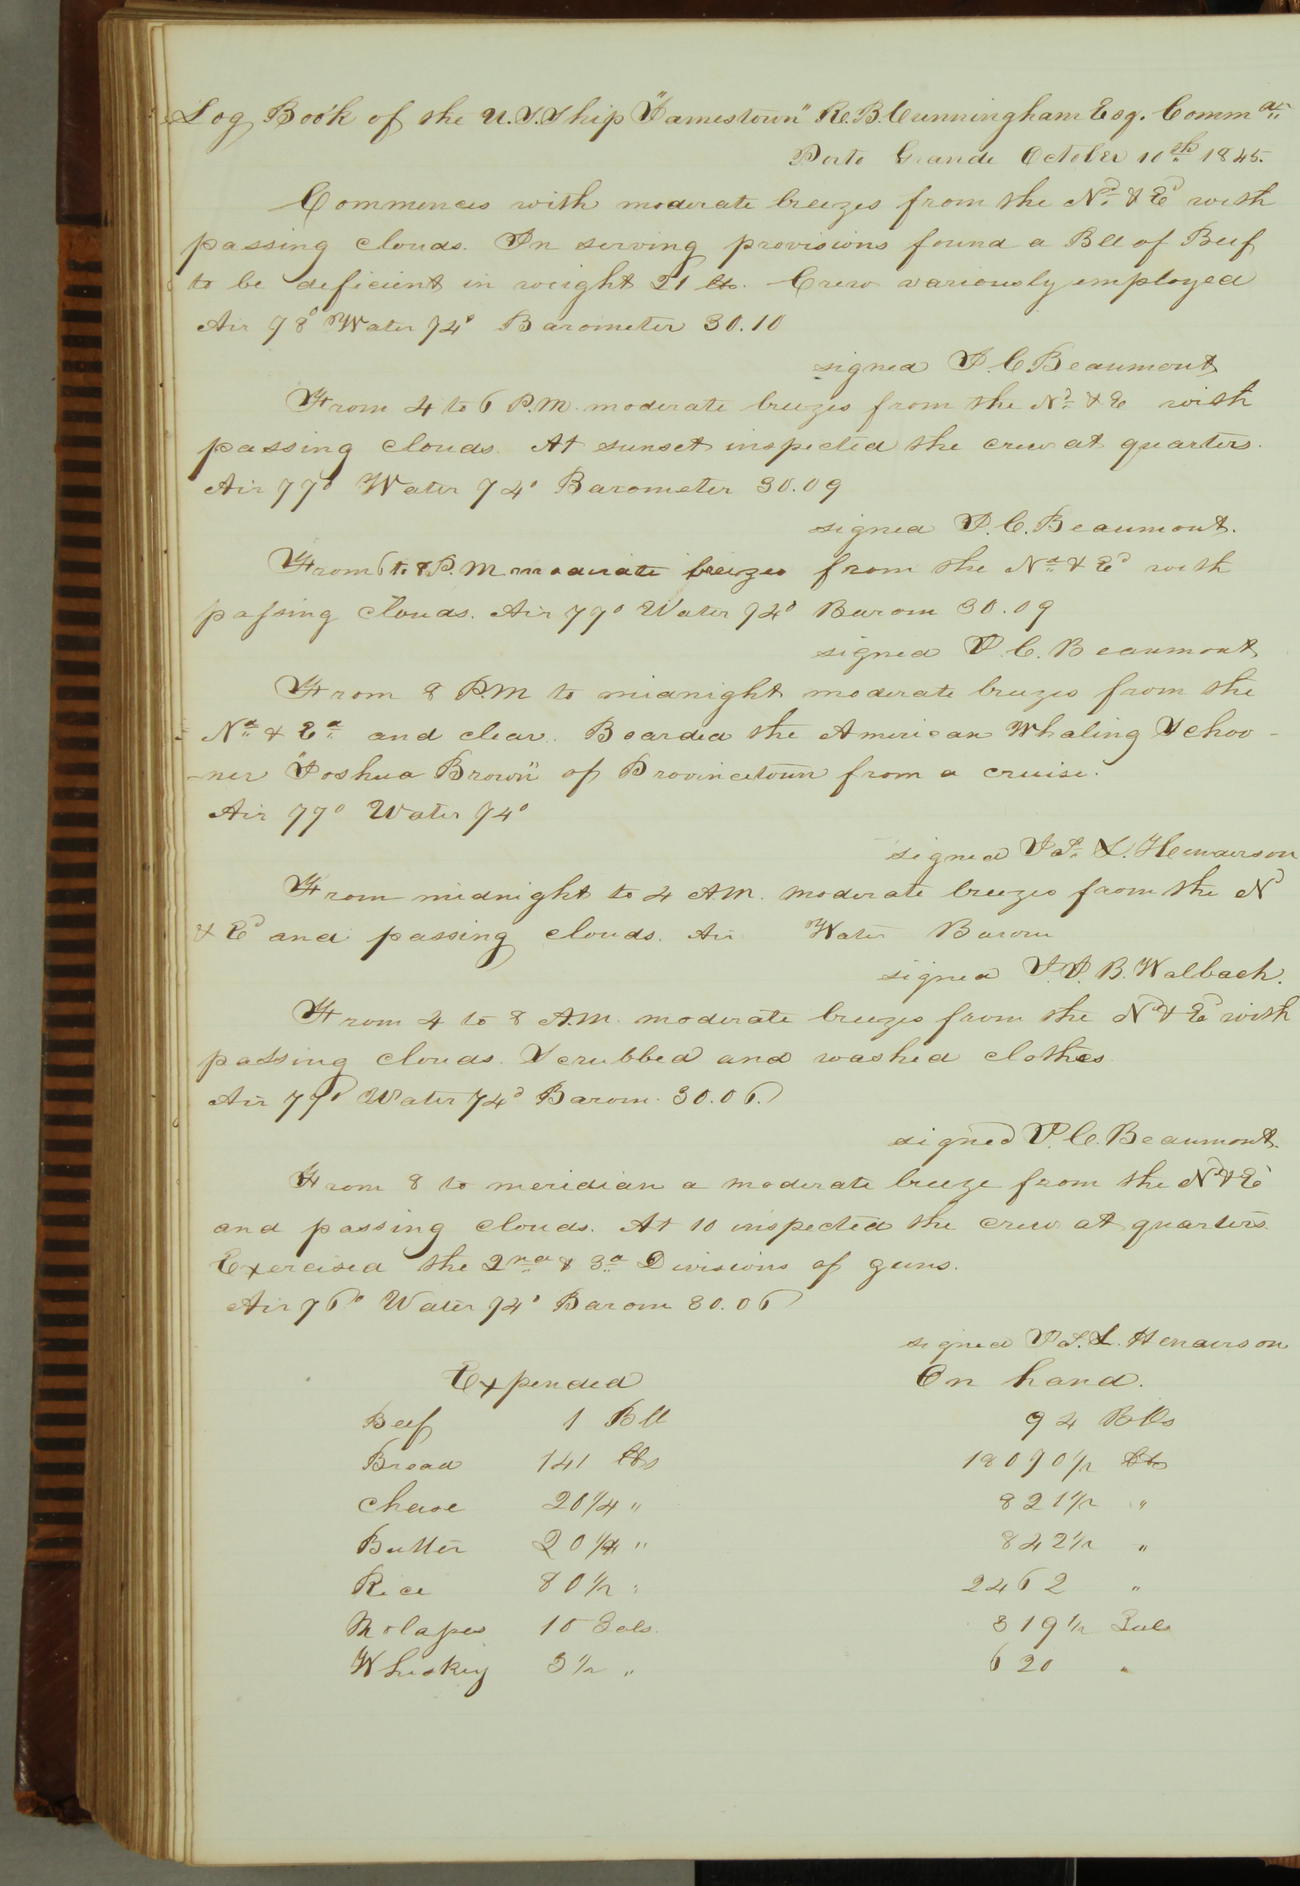 Log Book of the U.S. Ship "Jamestown" R.B. Cunningham Esq. Commdr
Porto Grande October 10th 1845.
Commences with moderate breezes from the Nd & Ed with
passing clouds. In serving provisions found a Bll of Beef
to be deficient in weight 21 lbs. Crew variously employed
Air 78° Water 74° Barometer 30.10
signed J.C. Beaumont
From 4 to 6 P.M. moderate breezes from the Nd & E with
passing clouds. At sunset inspected the crew at quarters.
Air 77° Water 74° Barometer 30.09
signed J.C. Beaumont.
From 6 to 8 P.M. moderate breezes from the Nd & Ed with
passing clouds. Air 77° Water 74° Barom 30.09
signed J.C. Beaumont
From 8 P.M to midnight moderate breezes from the
Nd & Ed and clear. Boarded the American Whaling Schoo-
-ner "Joshua Brown" of Provincetown from a cruise.
Air 77° Water 74°
signed L. Henderson
From midnight to 4 A.M. moderate breezes from the Nd
& Ed and passing clouds. Air Water Barom
signed J.J.B. Walbach.
From 4 to 8 A.M. moderate breezes from the Nd & Ed with
passing clouds. Scrubbed and washed clothes
Air 77° Water 74° Barom. 30.06.
signed J.C. Beaumont.
From 8 to meridian a moderate breeze from the Nd & Ed
and passing clouds. At 10 inspected the crew at quarters.
Exercised the 2nd & 3d Divisions of guns.
Air 76° Water 74° Barom 30.06
signed L. Henderson
Expended On hand.
Beef 1 Bll 94 Blls
Bread 141 lbs 18090 1/2 lbs
Cheese 20 1/4 " 821 1/2 "
Butter 20 1/4 " 842 1/2 "
Rice 80 1/2 " 2462 "
Molasses 10 Gals. 319 1/2 Gals
Whiskey 3 1/2 " 620 "